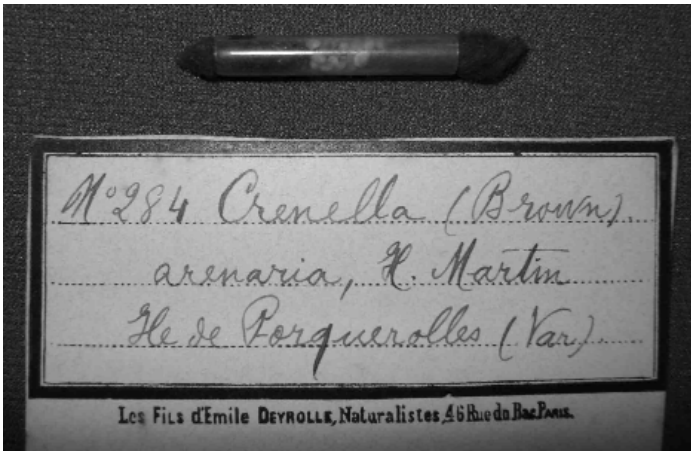 No 284 Crenella (Brown).
arenaria, H. Martin
Ile de Porquerolles (Var).
Les Fils d'Emile DEYROLLE, Naturalistes, 46 Rue du Bac PARIS.